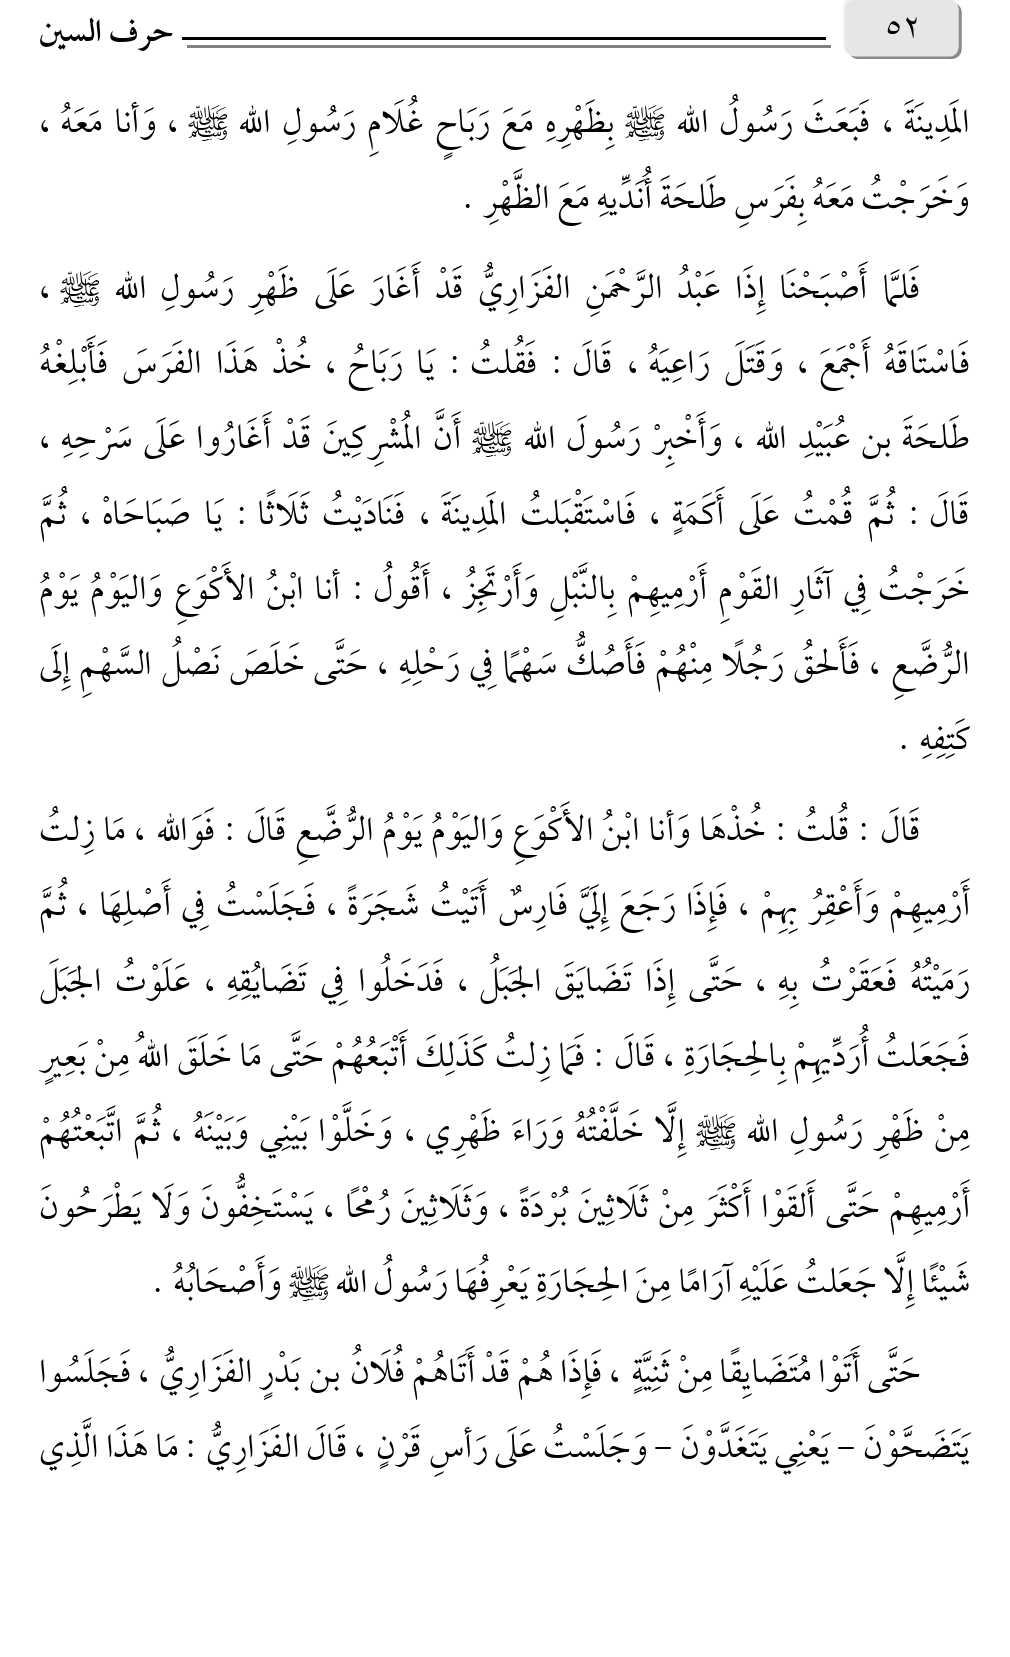 ٥٢
حرف السين
المَدِينَةَ ، فَبَعَثَ رَسُولُ الله ﷺ بِظَهْرِهِ مَعَ رَبَاحٍ غُلَامِ رَسُولِ الله ﷺ ، وَأنا مَعَهُ ،
وَخَرَجْتُ مَعَهُ بِفَرَسِ طَلحَةَ أُنَدِّيهِ مَعَ الظَّهْرِ .
فَلمَّا أَصْبَحْنَا إِذَا عَبْدُ الرَّحْمَنِ الفَزَارِيُّ قَدْ أَغَارَ عَلَى ظَهْرِ رَسُولِ الله ﷺ ،
فَاسْتَاقَهُ أَجْمَعَ ، وَقَتَلَ رَاعِيَهُ ، قَالَ : فَقُلتُ : يَا رَبَاحُ ، خُذْ هَذَا الفَرَسَ فَأَبْلِغْهُ
طَلحَةَ بن عُبَيْدِ الله ، وَأَخْبِرْ رَسُولَ الله ﷺ أَنَّ المُشْرِكِينَ قَدْ أَغَارُوا عَلَى سَرْحِهِ ،
قَالَ : ثُمَّ قُمْتُ عَلَى أَكَمَةٍ ، فَاسْتَقْبَلتُ المَدِينَةَ ، فَنَادَيْتُ ثَلَاثًا : يَا صَبَاحَاهْ ، ثُمَّ
خَرَجْتُ فِي آثَارِ القَوْمِ أَرْمِيهِمْ بِالنَّبْلِ وَأَرْتَجِزُ ، أَقُولُ : أنا ابْنُ الأَكْوَعِ وَاليَوْمُ يَوْمُ
الرُّضَّعِ ، فَأَلحقُ رَجُلًا مِنْهُمْ فَأَصُكُّ سَهْمًا فِي رَحْلِهِ ، حَتَّى خَلَصَ نَصْلُ السَّهْمِ إِلَى
كَتِفِهِ .
قَالَ : قُلتُ : خُذْهَا وَأنا ابْنُ الأَكْوَعِ وَاليَوْمُ يَوْمُ الرُّضَّعِ قَالَ : فَوَالله ، مَا زِلتُ
أَرْمِيهِمْ وَأَعْقِرُ بِهِمْ ، فَإِذَا رَجَعَ إِلَيَّ فَارِسٌ أَتَيْتُ شَجَرَةً ، فَجَلَسْتُ فِي أَصْلِهَا ، ثُمَّ
رَمَيْتُهُ فَعَقَرْتُ بِهِ ، حَتَّى إِذَا تَضَايَقَ الجَبَلُ ، فَدَخَلُوا فِي تَضَايُقِهِ ، عَلَوْتُ الجَبَلَ
فَجَعَلتُ أُرَدِّيهِمْ بِالحِجَارَةِ ، قَالَ : فَمَا زِلتُ كَذَلِكَ أَتْبَعُهُمْ حَتَّى مَا خَلَقَ اللهُ مِنْ بَعِيرٍ
مِنْ ظَهْرِ رَسُولِ الله ﷺ إِلَّا خَلَّفْتُهُ وَرَاءَ ظَهْرِي ، وَخَلَّوْا بَيْنِي وَبَيْنَهُ ، ثُمَّ اتَّبَعْتُهُمْ
أَرْمِيهِمْ حَتَّى أَلقَوْا أَكْثَرَ مِنْ ثَلَاثِينَ بُرْدَةً ، وَثَلَاثِينَ رُمْحًا ، يَسْتَخِفُّونَ وَلَا يَطْرَحُونَ
شَيْئًا إِلَّا جَعَلتُ عَلَيْهِ آرَامًا مِنَ الحِجَارَةِ يَعْرِفُهَا رَسُولُ الله ﷺ وَأَصْحَابُهُ .
حَتَّى أَتَوْا مُتَضَايِقًا مِنْ ثَنِيَّةٍ ، فَإِذَا هُمْ قَدْ أَتَاهُمْ فُلَانُ بن بَدْرٍ الفَزَارِيُّ ، فَجَلَسُوا
يَتَضَحَّوْنَ – يَعْنِي يَتَغَدَّوْنَ – وَجَلَسْتُ عَلَى رَأسِ قَرْنٍ ، قَالَ الفَزَارِيُّ : مَا هَذَا الَّذِي